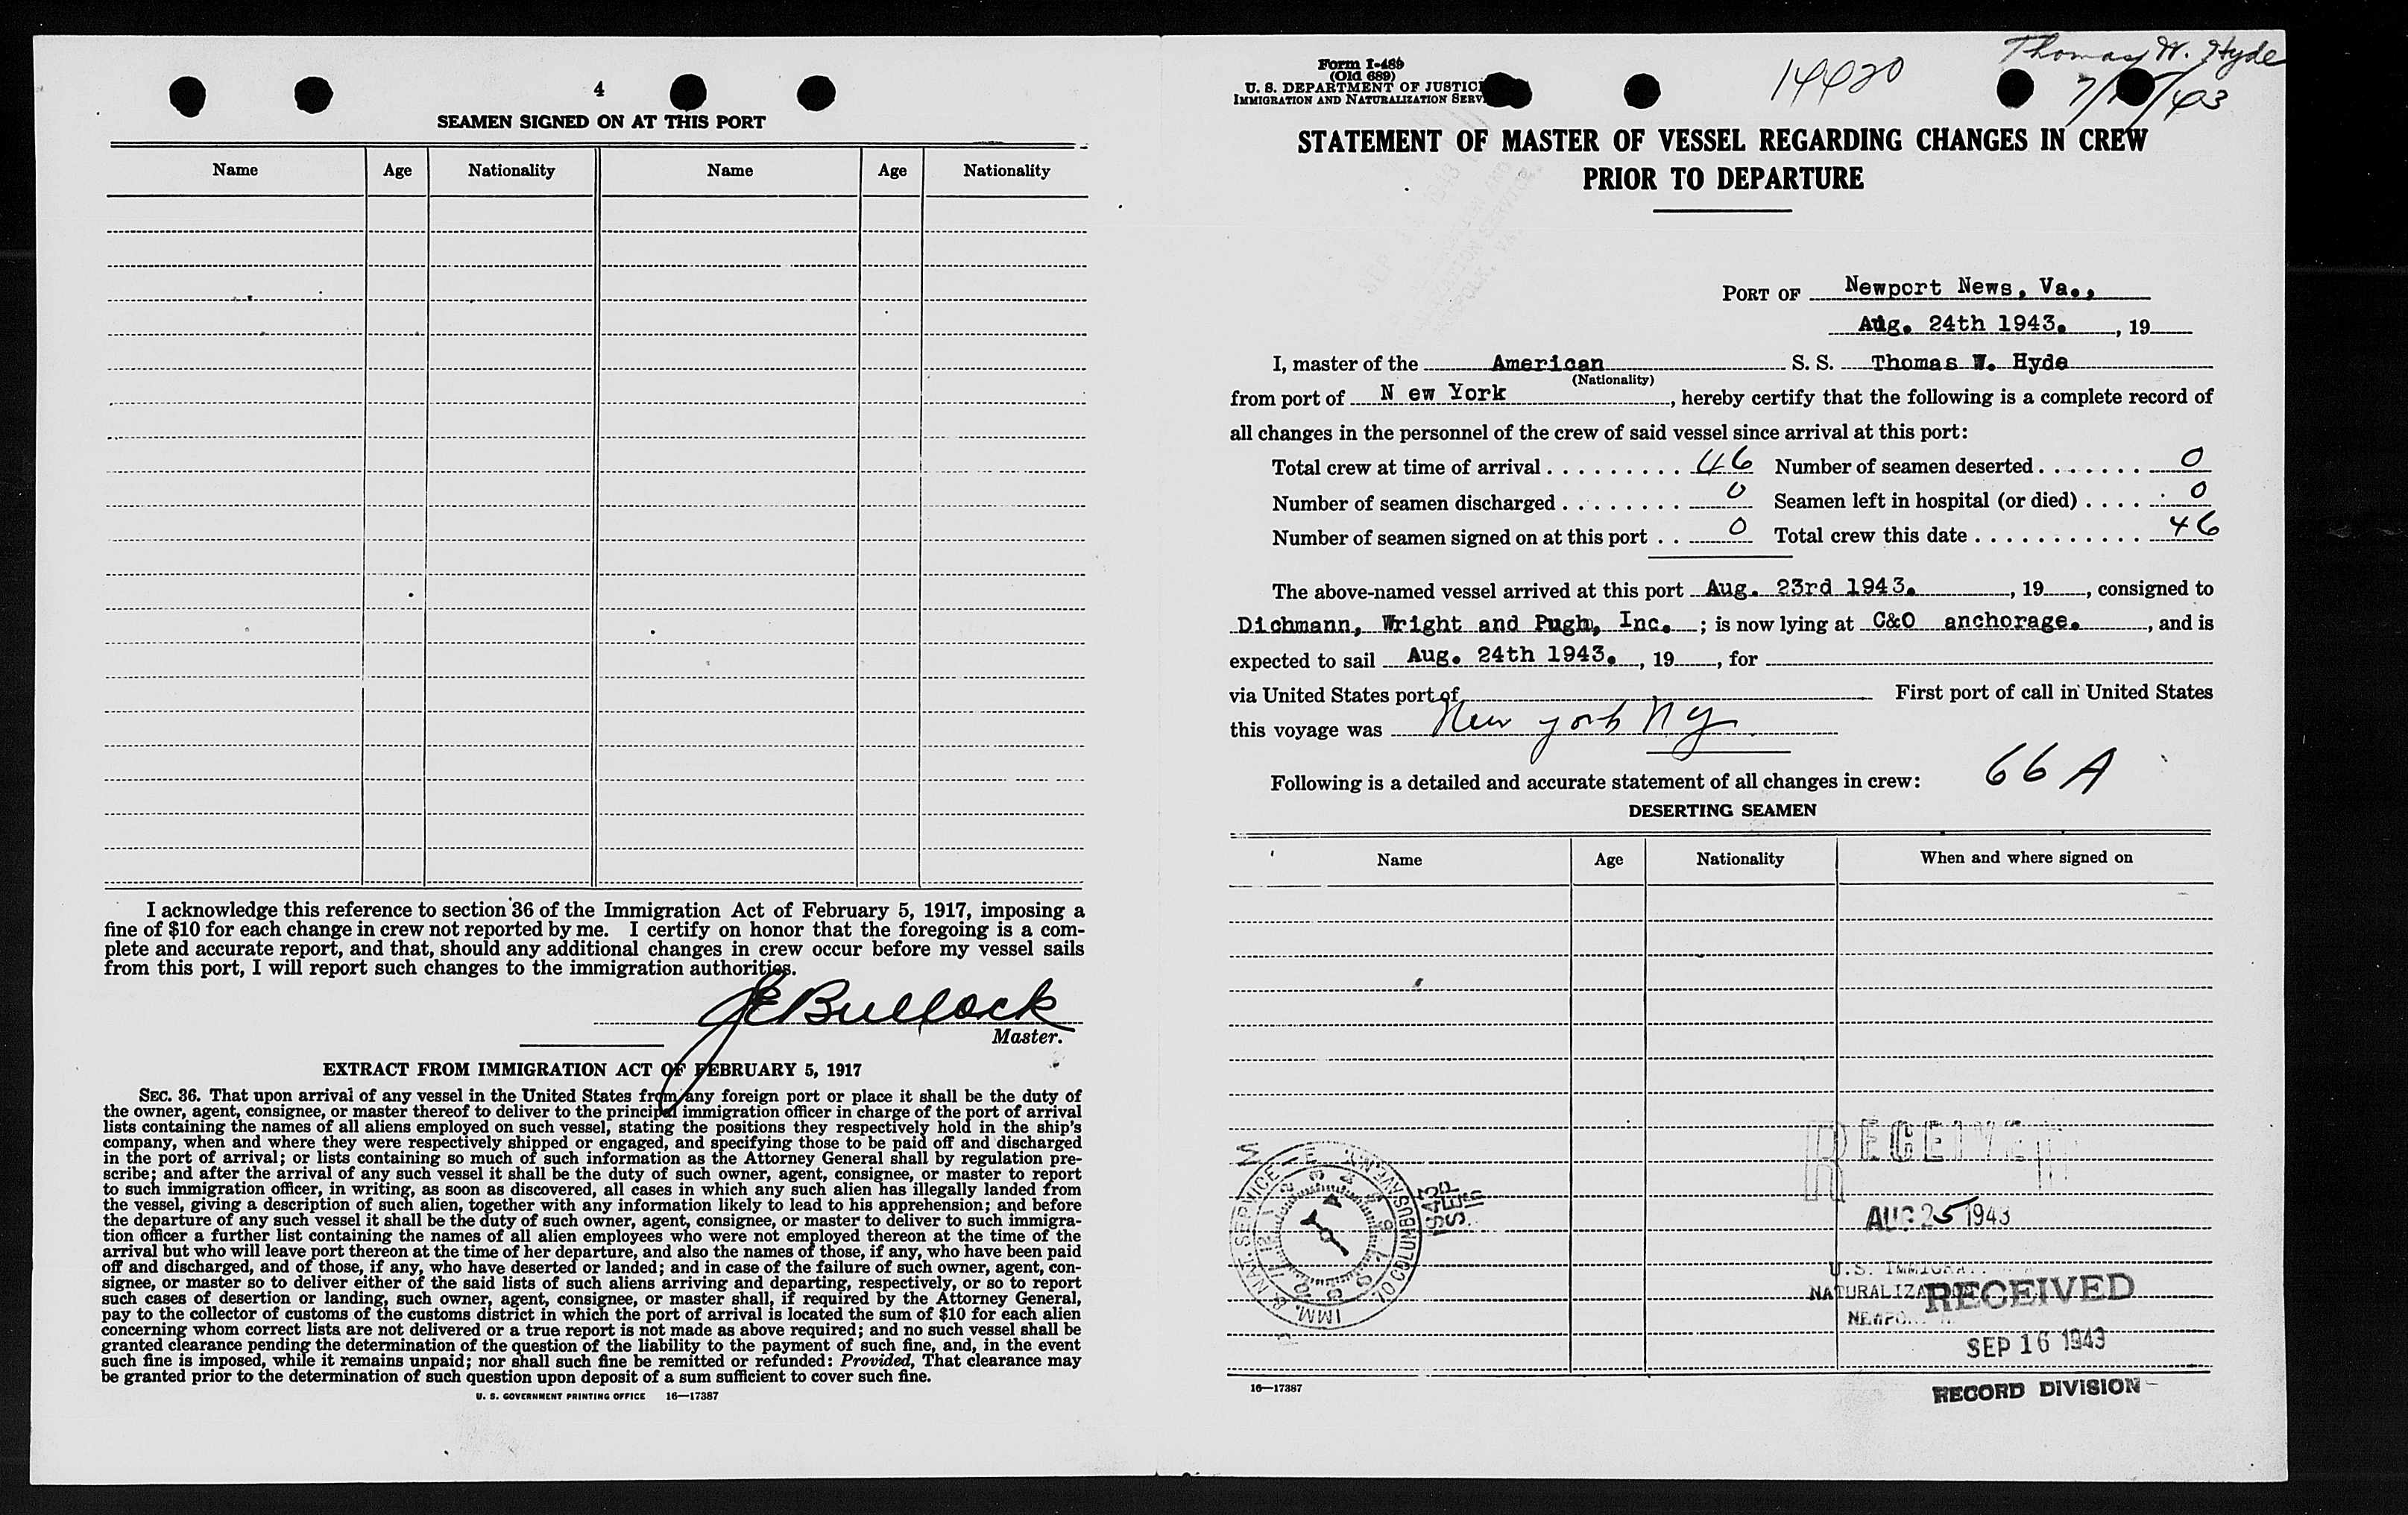 4
SEAMEN SIGNED ON AT THIS PORT
Name Age Nationality Name Age Nationality
I acknowledge this reference to section 36 of the Immigration Act of February 5, 1917, imposing a
fine of $10 for each change in crew not reported by me. I certify on honor that the foregoing is a com-
plete and accurate report, and that, should any additional changes in crew occur before my vessel sails
from this port, I will report such changes to the immigration authorities.
JE Bullock
Master.
EXTRACT FROM IMMIGRATION ACT OF FEBRUARY 5, 1917
SEC. 36. That upon arrival of any vessel in the United States from any foreign port or place it shall be the duty of
the owner, agent, consignee, or master thereof to deliver to the principal immigration officer in charge of the port of arrival
lists containing the names of all aliens employed on such vessel, stating the positions they respectively hold in the ship's
company, when and where they were respectively shipped or engaged, and specifying those to be paid off and discharged
in the port of arrival; or lists containing so much of such information as the Attorney General shall by regulation pre-
scribe; and after the arrival of any such vessel it shall be the duty of such owner, agent, consignee, or master to report
to such immigration officer, in writing, as soon as discovered, all cases in which any such alien has illegally landed from
the vessel, giving a description of such alien, together with any information likely to lead to his apprehension; and before
the departure of any such vessel it shall be the duty of such owner, agent, consignee, or master to deliver to such immigra-
tion officer a further list containing the names of all alien employees who were not employed thereon at the time of the
arrival but who will leave port thereon at the time of her departure, and also the names of those, if any, who have been paid
off and discharged, and of those, if any, who have deserted or landed; and in case of the failure of such owner, agent, con-
signee, or master so to deliver either of the said lists of such aliens arriving and departing, respectively, or so to report
such cases of desertion or landing, such owner, agent, consignee, or master shall, if required by the Attorney General,
pay to the collector of customs of the customs district in which the port of arrival is located the sum of $10 for each alien
concerning whom correct lists are not delivered or a true report is not made as above required; and no such vessel shall be
granted clearance pending the determination of the question of the liability to the payment of such fine, and, in the event
such fine is imposed, while it remains unpaid; nor shall such fine be remitted or refunded: Provided, That clearance may
be granted prior to the determination of such question upon deposit of a sum sufficient to cover such fine.
U. S. GOVERNMENT PRINTING OFFICE 16—17387
Form I-489
(Old 689)
U. S. DEPARTMENT OF JUSTICE
IMMIGRATION AND NATURALIZATION SERV
14420
Thomas W. Hyde
STATEMENT OF MASTER OF VESSEL REGARDING CHANGES IN CREW
PRIOR TO DEPARTURE
PORT OF Newport News, Va.,
Aug. 24th 1943. , 19
I, master of the American S. S. Thomas W. Hyde
(Nationality)
from port of N ew York , hereby certify that the following is a complete record of
all changes in the personnel of the crew of said vessel since arrival at this port:
Total crew at time of arrival . . . . . . . . . 46 Number of seamen deserted . . . . . . . 0
Number of seamen discharged . . . . . . . . 0 Seamen left in hospital (or died) . . . . 0
Number of seamen signed on at this port . . 0 Total crew this date . . . . . . . . . . . 46
The above-named vessel arrived at this port Aug. 23rd 1943. , 19 , consigned to
Dichmann, Wright and Pugh, Inc. ; is now lying at C&O anchorage. , and is
expected to sail Aug. 24th 1943. , 19 , for
via United States port of First port of call in United States
this voyage was New york NY
66 A
Following is a detailed and accurate statement of all changes in crew:
DESERTING SEAMEN
Name Age Nationality When and where signed on
RECEIVE
AUG 25 1943
U.S. IMMIGRA
NATURALIZA
RECEIVED
SEP 16 1943
RECORD DIVISION
IMM. & NAT. SERVICE
1943 SEP 16
16—17387